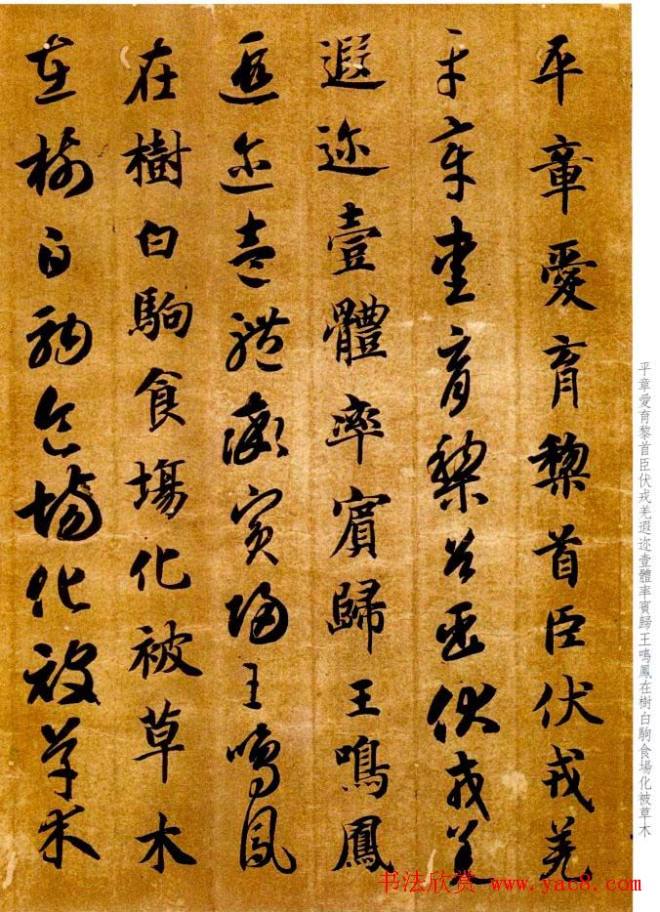 平章愛育黎首臣伏戎羌
平章愛育黎首臣伏戎羌
遐迩壹體率賓歸王鳴鳳
遐迩壹體率賓歸王鳴鳳
在樹白駒食場化被草木
在樹白駒食場化被草木
平章愛育黎首臣伏戎羌遐迩壹體率賓歸王鳴鳳在樹白駒食場化被草木
书法欣赏 www.yac8.com